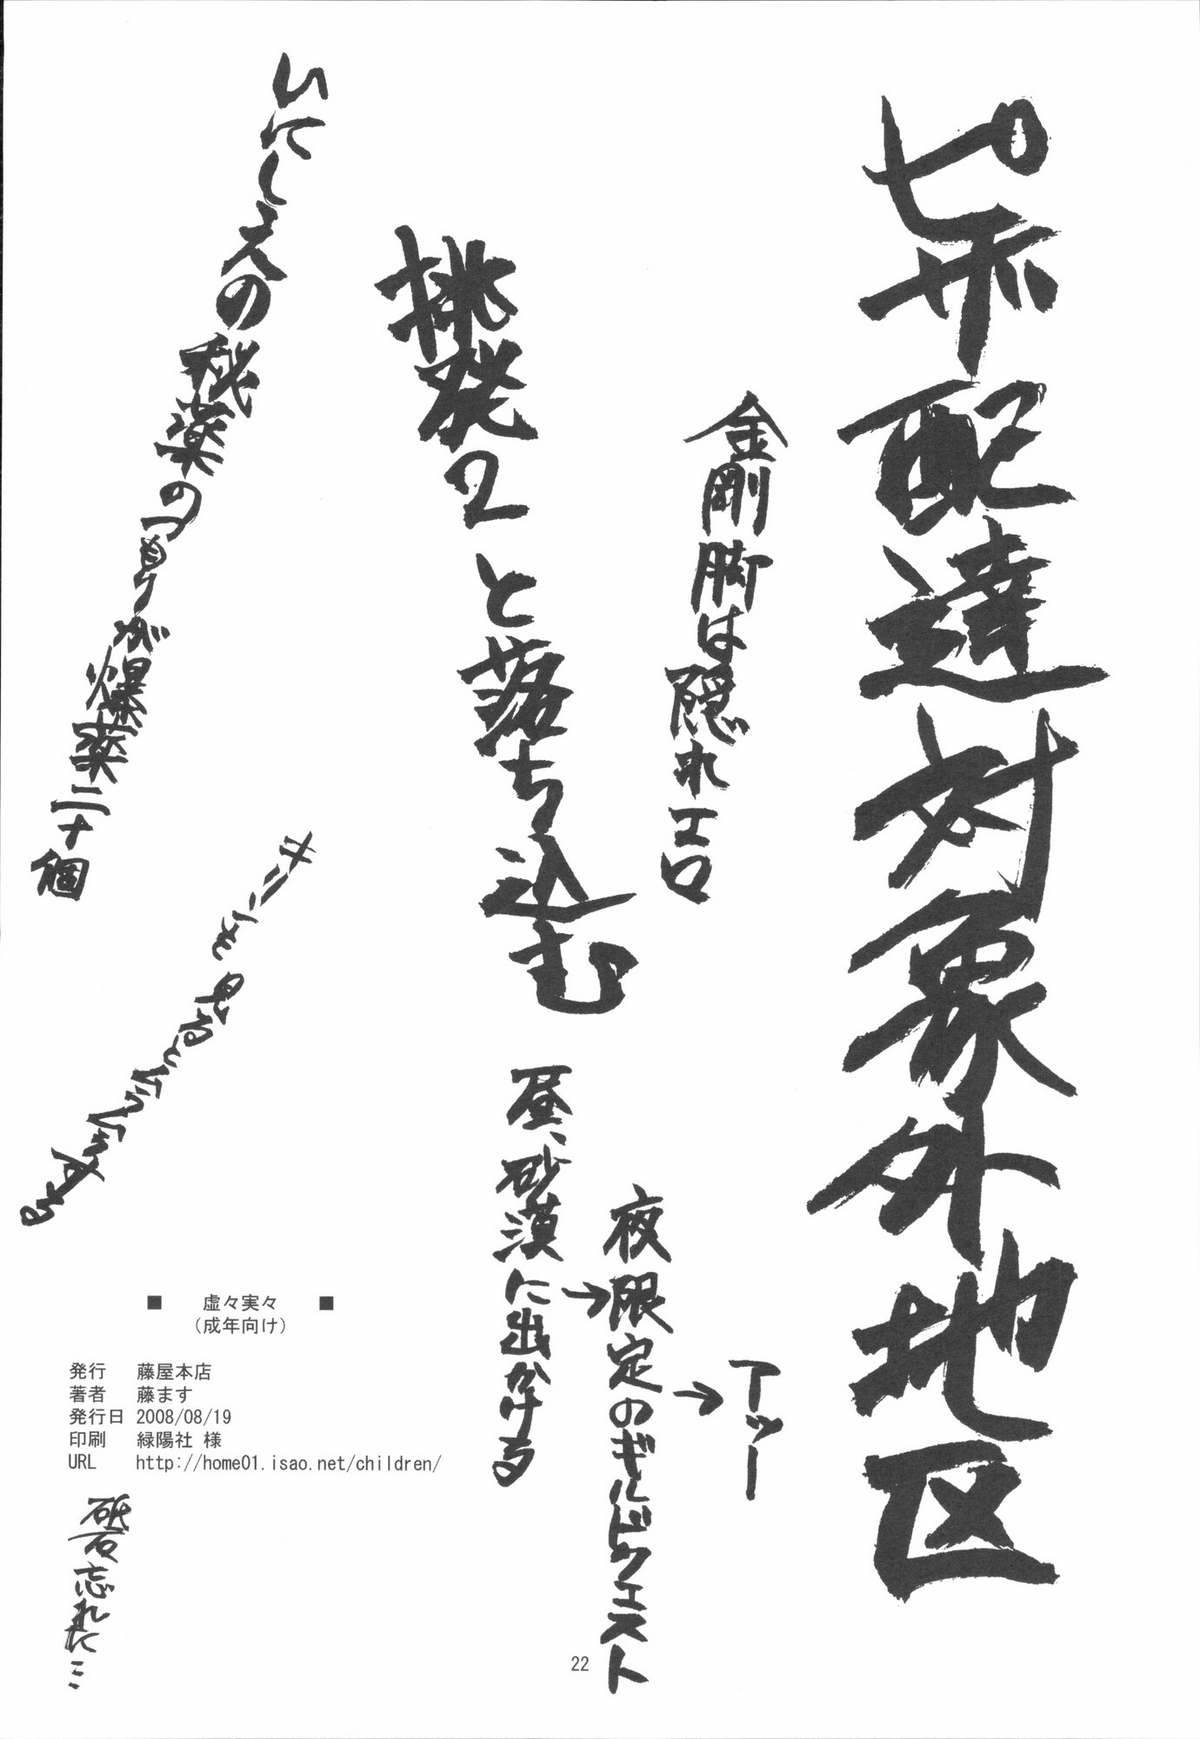 ピザ配達対象外地区
金剛脚は隠れエロ
挑発2と落ち込む
いにしえの秘薬のつもりが爆薬二十個
昼、砂漠に出かける
→夜限定のギルドクエスト
→アッー
■ 虚々実々 ■
(成年向け)
発行 藤屋本店
著者 藤ます
発行日 2008/08/19
印刷 緑陽社 様
URL http://home01.isao.net/children/
砥石忘れた…
22